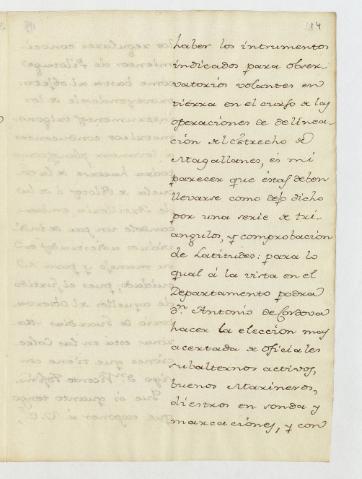 184
haber los intrumentos
indicados para obser-
vatorios volantes en
tierra en el curso de las
operaciones de delinea-
cion del Estrecho de
Magallanes, es mi
parecer que éstas deben
llevarse como dejo dicho
por una serie de tri-
angulos, y comprobacion
de Latitudes: para lo
qual á la vista en el
Departamento podrá
Dn. Antonio de Cordova
hacer la eleccion mas
acertada de oficiales
subalternos activos,
buenos Marineros,
diestros en sonda y
marcaciones, y con